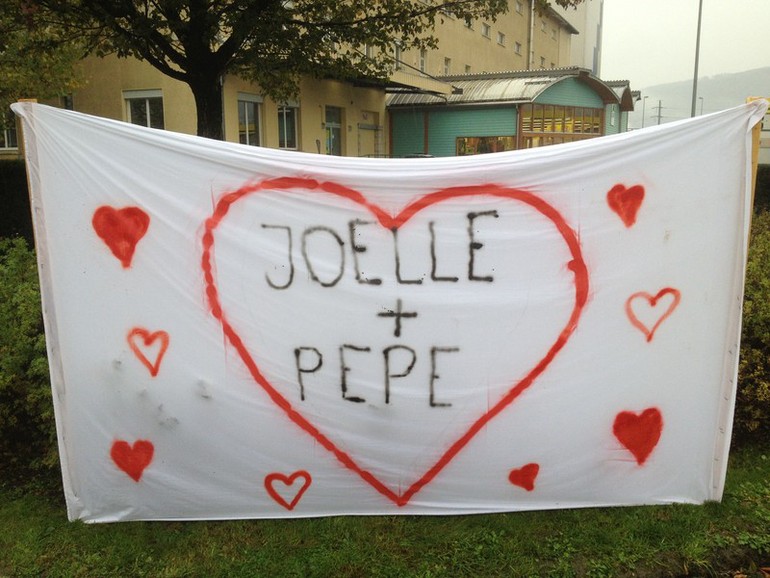 JOELLE
+
PEPE